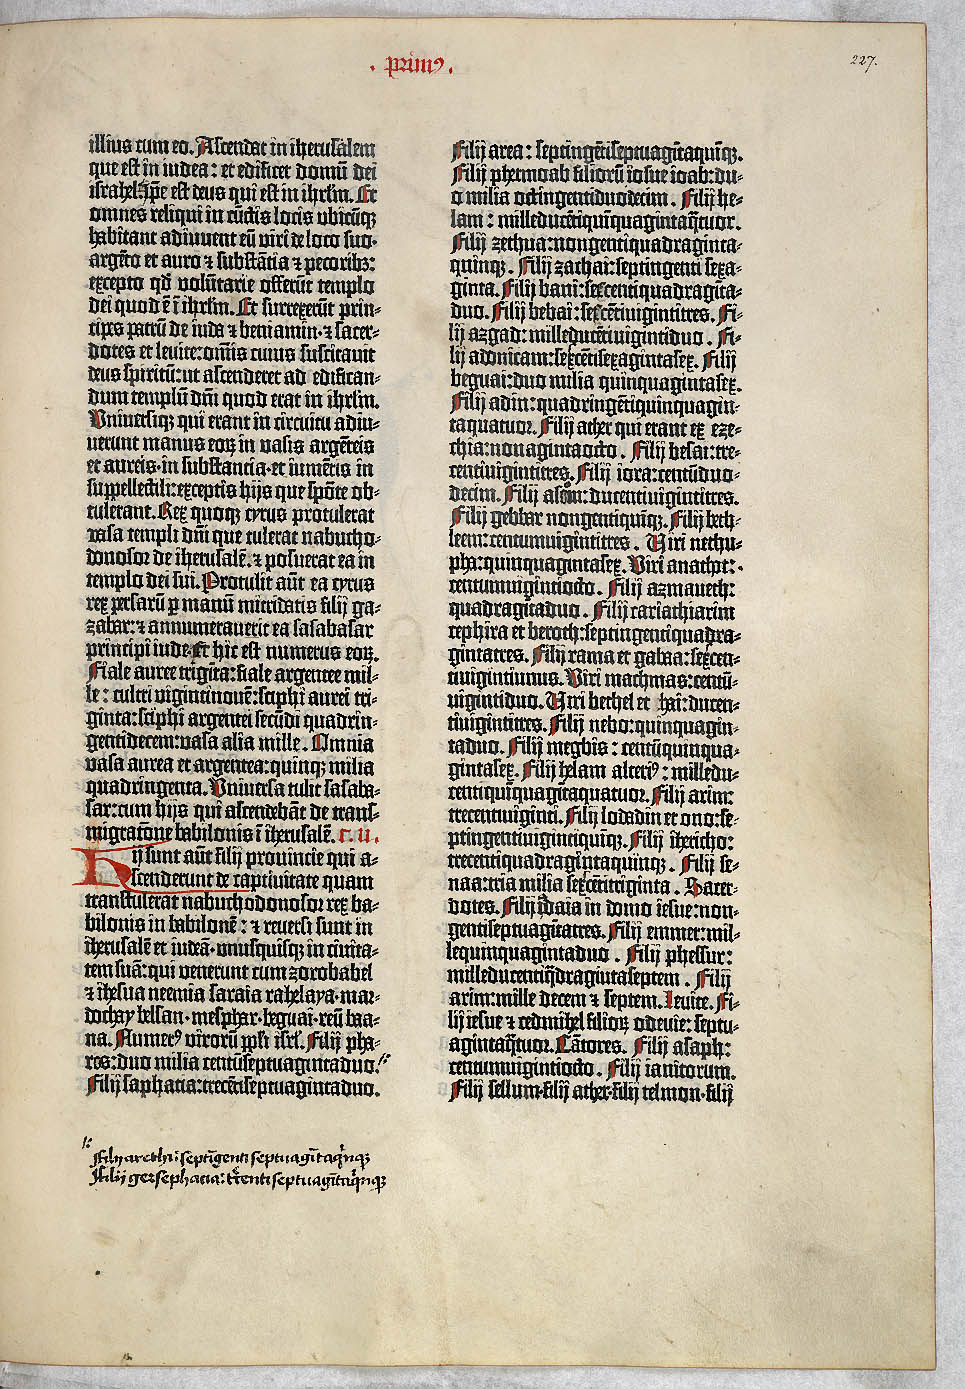 . primꝰ .
227.
illius cum eo. Ascendat in iherusalem
que est in iudea: et edificet domū dei
israhel. Ip̄e est deus qui est in ihrlm̄. Et
omnes reliqui in cūctis locis ubicūqꝫ
habitant adiuuent eū viri de loco suo·
argēto et auro ⁊ substātia ⁊ pecoribꝫ:
excepto qd̄ volūtarie offerūt templo
dei quod ē ī ihrlm̄. Et surrexerūt prin-
cipes patrū de iuda ⁊ beniamin·⁊ sacer-
dotes et leuite: om̄is cuius suscitauit
deus spiritū: ut ascenderet ad edifican-
dum templū dn̄i quod erat in ihrlm̄.
Vniuersiqꝫ qui erant in circuitu adiu-
uerunt manus eoꝝ in vasis argēteis
et aureis·in substancia·et iumētis in
suppellectili: exceptis hijs que spōte ob-
tulerant. Rex quoqꝫ cyrus protulerat
vasa templi dn̄i que tulerat nabucho-
donosor de iherusalē·⁊ posuerat ea in
templo dei sui. Protulit aūt ea cyrus
rex persarū p manū mitridatis filij ga-
zabar:⁊ annumerauerit ea sasabasar
principi iude·Et hic est numerus eoꝝ.
Fiale auree trigīta: fiale argentee mil-
le: cultri vigintinouē: sciphi aurei tri-
ginta: sciphi argentei secūdi quadrin-
gentidecem: vasa alia mille. Omnia
vasa aurea et argentea: quinqꝫ milia
quadringenta. Vniuersa tulit sasaba-
sar: cum hijs qui ascendebāt de trans-
migratōne babilonis ī iherusalē. c. ii.
Hij sunt aūt filij prouincie qui a-
scenderunt de captiuitate quam
transtulerat nabuchodonosor rex ba-
bilonis in babilonē: ⁊ reuersi sunt in
iherusalē et iudeā·unusquisqꝫ in ciuita-
tem suā: qui venerunt cum zorobabel
⁊ ihesua neemia saraia rahelaya·mar-
dochay belsan·mesphar·beguai·reū baa-
na. Numerꝰ virorū pp̄li isrl̄. Filij pha-
ros: duo milia centūseptuagintaduo.
Filij saphatia: trecētiseptuagintaduo.
Filij arethi: septīgenti septuagītaqͥnqꝫ
Filij gersephatia: trͤcenti septuagītaqͥnqꝫ
Filij area: septingētiseptuagītaquīqꝫ.
Filij phetmoab filiorū iosue ioab: du-
o milia octingentiduodecim. Filij he-
lam: milleducētiquīquagintaq̄tuor.
Filij zethua: nongentiquadraginta-
quinqꝫ. Filij zachai: septingenti sexa-
ginta. Filij bani: sexcentiquadragīta-
duo. Filij bebai: sexcētiuigintitres. Fi-
lij azgad: milleducētiuigintiduo. Fi-
lij adonicam: sexcētisexagintasex. Filij
beguai: duo milia quinquagintasex.
Filij adin: quadringētiquinquagin-
taquatuor. Filij ather qui erant ex eze-
chia: nonagintaocto. Filij besai: tre-
centiuigintitres. Filij iora: centūduo-
decim. Filij asom: ducentiuigintitres.
Filij gebbar nongentiquīqꝫ. Filij beth-
leem: centumuigintitres. Viri nethu-
pha: quinquagintasex. Viri anathot:
centumuigintiocto. Filij azmaueth:
quadragītaduo. Filij cariathiarim
cephira et beroth: septingentiquadra-
gintatres. Filij rama et gabaa: sexcen-
tiuigintiunus. Viri machmas: centū-
uigintiduo. Viri bethel et hai: ducen-
tiuigintitres. Filij nebo: quinquagin-
taduo. Filij megbis: centūquinqua-
gintasex. Filij helam alterꝰ: milledu-
centiquīquagītaquatuor. Filij arim:
trecentiuiginti. Filij lodadin et ono: se-
ptingentiuigintiquīqꝫ. Filij ihericho:
trecentiquadragintaquinqꝫ. Filij se-
naa: tria milia sexcētitriginta. Sacer-
dotes. Filij idaia in domo iesue: non-
gentiseptuagītatres. Filij emmer: mil-
lequinquagintaduo. Filij phessur:
milleducentiq̄dragintaseptem. Filij
arim: mille decem ⁊ septem. Leuite. Fi-
lij iesue ⁊ cedmihel filioꝝ odeuie: septu-
agintaq̄tuor. Cātores. Filij asaph:
centumuigintiocto. Filij ianitorum.
Filij sellum·filij ather·filij telmon·filij